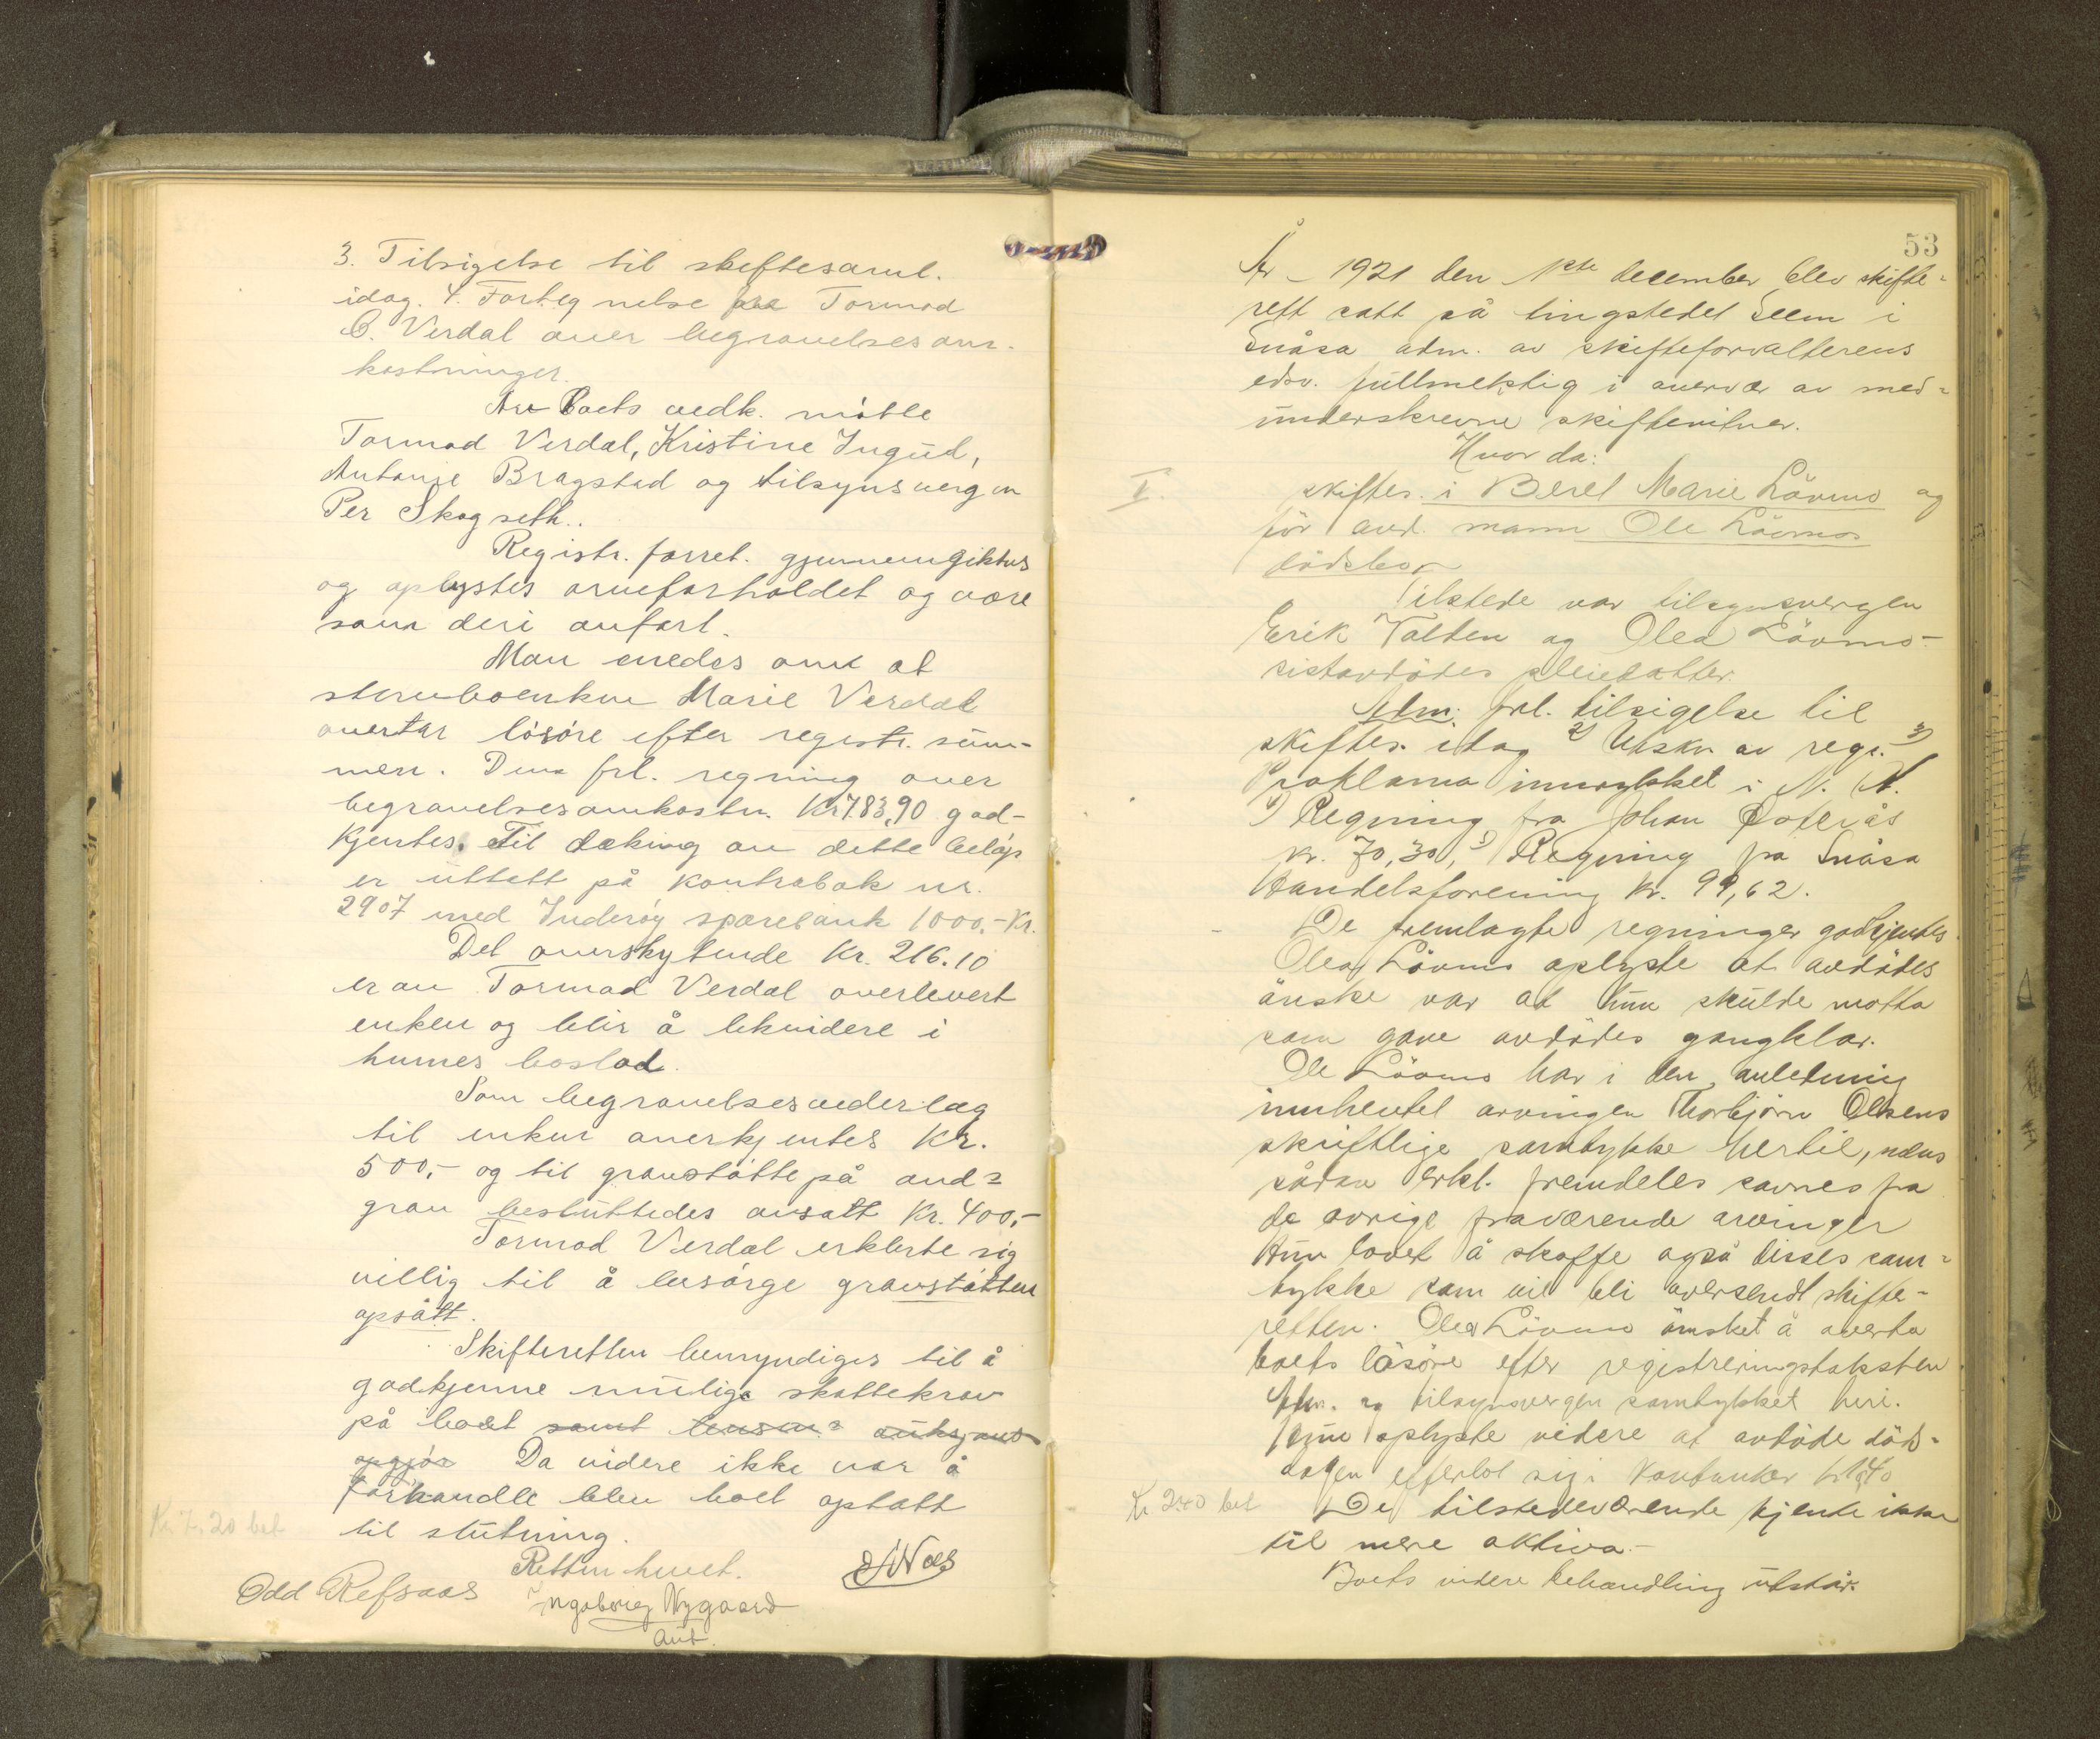 3. Tilsigelse til skiftesaml.
idag. 4. Fortegnelse fra Tormod
O. Verdal over begravelsesom-
kostninger.
Av Boets vedk. møtte
Tormod Verdal, Kristine Ingud,
Antonie Bragstad og tilsynsvergen
Per Skogseth.
Registr. forret. gjennemgikkes
og oplystes arveforholdet og være
som deri anført.
Man enedes om at
stervboenken Marie Verdal
overtar løsøre efter registr. sum-
men. Den frl. regning over
begravelsesomkostn. Kr 783,90 god-
kjentes. Til dekning av dette beløp
er uttatt på kontrabok nr.
2907 med Inderøy sparebank 1000,- Kr.
Det overskytende Kr. 216.10
er av Tormod Verdal overlevert
enken og blir å likvidere i
hennes boslod.
Som begravelsesvederlag
til enken anerkjentes Kr.
500,- og til gravstøtte på avd-
grav besluttedes avsatt Kr. 400,-
Tormod Verdal erklerte sig
villig til å besørge gravstøtten
opsatt.
Skifteretten bemyndiges til å
godkjenne mulige skattekrav
på boet samt auksjons
opgjør Da videre ikke var å
forhandle blev boet optatt
til slutning.
Kr 7.20 bet
Retten hevet.
Odd Refsaas
Ingeborg Nygaard
aut.
53
År 1921 den 1ste december blev skifte-
rett satt på tingstedet Seem i
Snåsa adm. av skifteforvalterens
edsv. fullmektig i overvær av med-
underskrevne skiftevitner.
Hvor da:
I. skiftes. i Beret Marie Lövmo og
før avd. mann Ole Lövmos
dödsbo
Tilstede var tilsynsvergen
Erik Valten og Olea Lövmo
sistavdödes pleiedatter.
Adm. frl. tilsigelse til
skiftes. idag 2) Utskr av regr. 3)
Proklama innrykket i N. A.
4) Regning fra Johan
kr. 70,30, 5) Regning fra Snåsa
Handelsforening kr. 99,62.
De fremlagte regninger godkjentes.
Olea Lövmo oplyste at avdödes
önske var at hun skulde motta
som gave avdödes gangklær.
Ole Lövmo har i den anledning
innhentet arvingen Thorbjörn Olsens
skriftlige samtykke hertil, mens
sådan erkl. fremdeles savnes fra
de övrige fraværende arvinger
Hun lovet å skaffe også disses sam-
tykke som vil bli oversendt skifte-
retten. Olea Lövmo önsket å overta
boets lösöre efter registreringstaksten
Adm. og tilsynsvergen samtykket heri.
Hun oplyste videre at avdöde döds-
dagen efterlot sig i kontanter
Kr 240 bet
De tilstedeværende kjente ikke
til mere aktiva.-
Boets videre behandling utstår.